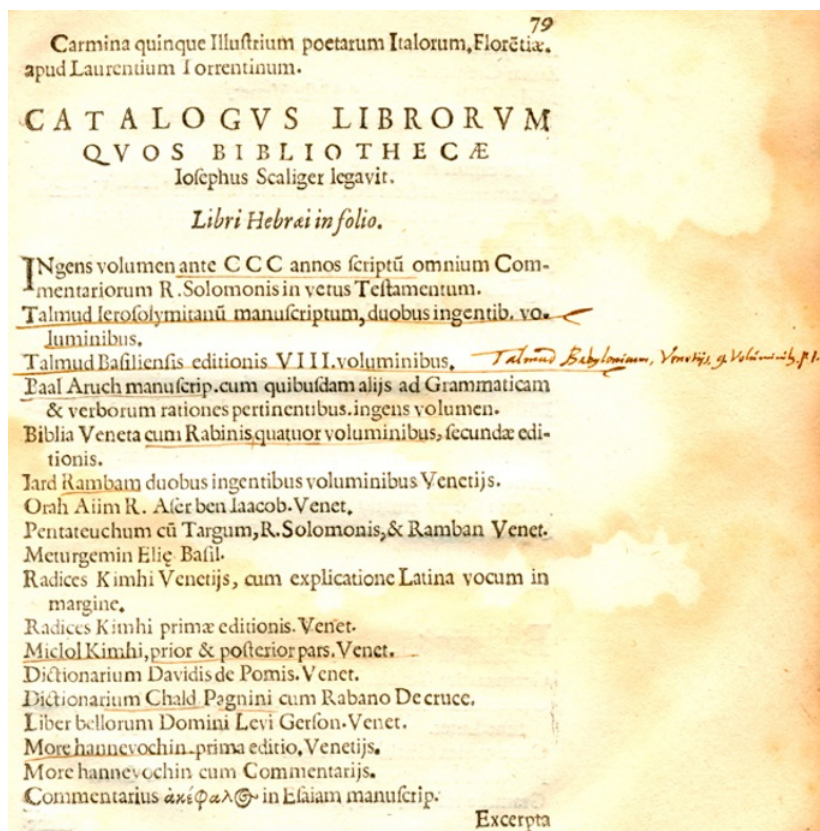 79
Carmina quinque Illuſtrium poetarum Italorum, Florētiæ.
apud Laurentium Torrentinum.
CATALOGVS LIBRORVM
QVOS BIBLIOTHECÆ
Ioſephus Scaliger legavit.
Libri Hebræi in folio.
INgens volumen ante CCC annos ſcriptū omnium Com-
mentariorum R. Solomonis in vetus Teſtamentum.
Talmud Ieroſolymitanū manuſcriptum, duobus ingentib. vo-
luminibus.
Talmud Baſilienſis editionis VIII. voluminibus. Talmud Babylonicum, Venetijs, 9. Voluminib.
Baal Aruch manuſcrip. cum quibuſdam alijs ad Grammaticam
& verborum rationes pertinentibus. ingens volumen.
Biblia Veneta cum Rabinis, quatuor voluminibus, ſecundæ edi-
tionis.
Iard Rambam duobus ingentibus voluminibus Venetijs.
Orah Aiim R. Aſer ben Iaacob. Venet.
Pentateuchum cū Targum, R. Solomonis, & Ramban Venet.
Meturgemin Elię Baſil.
Radices Kimhi Venetijs, cum explicatione Latina vocum in
margine.
Radices Kimhi primæ editionis. Venet.
Miclol Kimhi, prior & poſterior pars. Venet.
Dictionarium Davidis de Pomis. Venet.
Dictionarium Chald. Pagnini cum Rabano De cruce.
Liber bellorum Domini Levi Gerſon. Venet.
More hannevochin prima editio, Venetijs.
More hannevochin cum Commentarijs.
Commentarius ἀκέφαλος in Eſaiam manuſcrip.
Excerpta